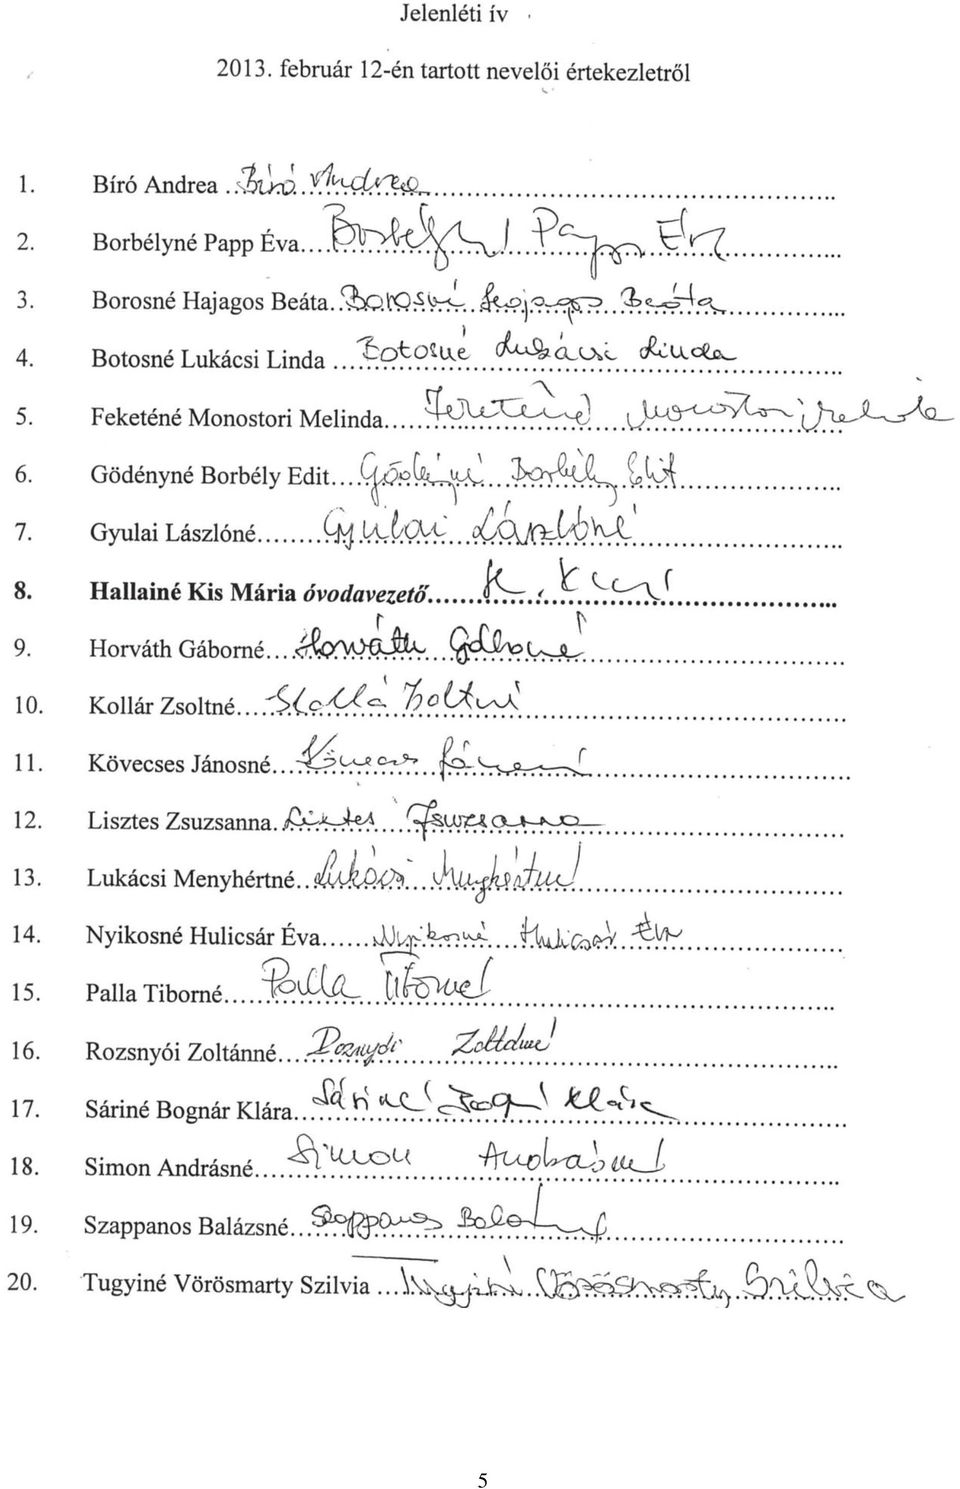 Jelenléti ív
2013. február 12-én tartott nevelői értekezletről
1. Bíró Andrea Bíró Andrea
2. Borbélyné Papp Éva Borbélyné Papp Éva
3. Borosné Hajagos Beáta Borosné Hajagos Beáta
4. Botosné Lukácsi Linda Botosné Lukácsi Linda
5. Feketéné Monostori Melinda Feketéné Monostori Melinda
6. Gödényné Borbély Edit Gödényné Borbély Edit
7. Gyulai Lászlóné Gyulai Lászlóné
8. Hallainé Kis Mária óvodavezető H. K
9. Horváth Gáborné Horváth Gáborné
10. Kollár Zsoltné Kollár Zsoltné
11. Kövecses Jánosné Kövecses Jánosné
12. Lisztes Zsuzsanna Lisztes Zsuzsanna
13. Lukácsi Menyhértné Lukácsi Menyhértné
14. Nyikosné Hulicsár Éva Nyikosné Hulicsár Éva
15. Palla Tiborné Palla Tiborné
16. Rozsnyói Zoltánné Rozsnyói Zoltánné
17. Sáriné Bognár Klára Sáriné Bognár Klára
18. Simon Andrásné Simon Andrásné
19. Szappanos Balázsné Szappanos Balázsné
20. Tugyiné Vörösmarty Szilvia Tugyiné Vörösmarty Szilvia
5